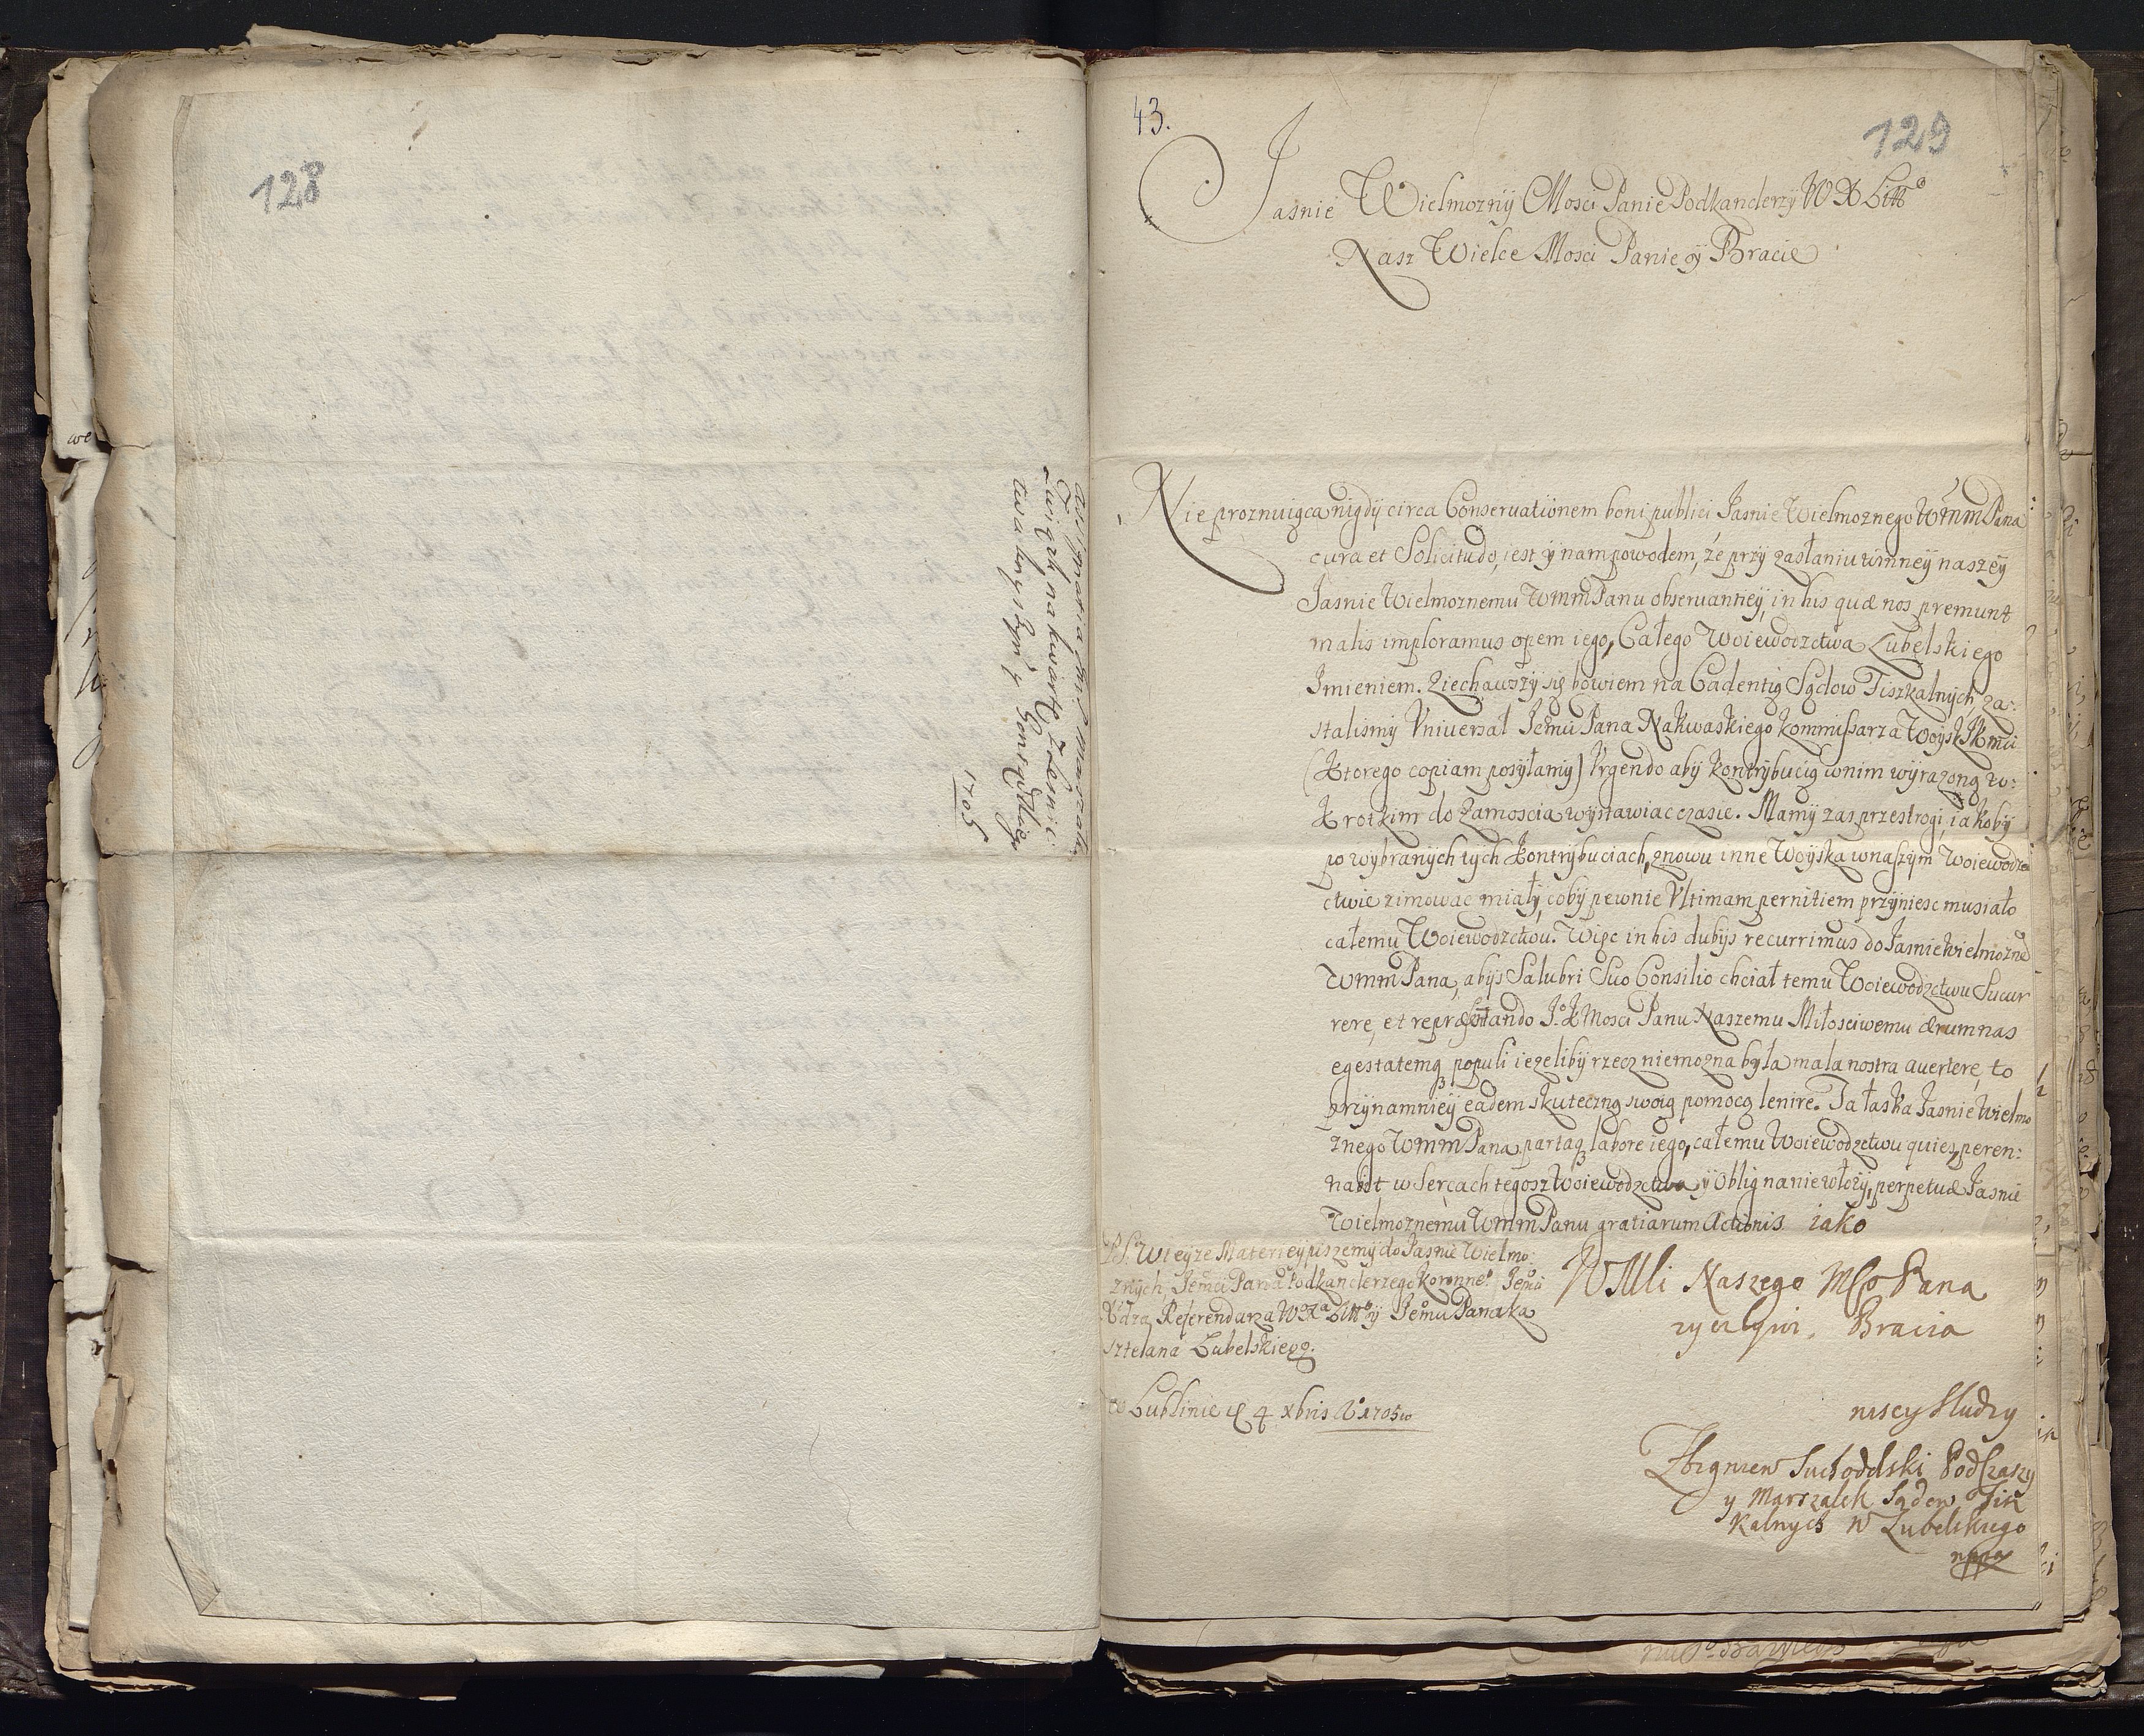 128
Assignatia Im P Marszałka
Zwiąsk na kwartę z Leśnic
twa
1705
43.
129
Jasnie Wielmozny Mosci Panie Podkanclerzy W X Litto
Nasz Wielce Mosci Panie y Bracie
Nie proznuiąca nigdy circa Conseruationem boni publici Jasnie Wielmoznego WMM Pana
cura et Solicitudo, iest y nam powodem, że przy zasłaniu winney naszey
Jasnie Wielmoznemu WMM Panu obserwanney, in his quæ nos premunt
malis imploramus opem iego, Całego Woiewodztwa Lubelskiego
Imieniem. Ziechawszy się bowiem na Cadentią Sądow Fiszkalnych, za:
stalismy Vniuersał Jemci Pana Nakwaskiego Kommissarza Woysk JKmci
(Ktorego copiam posyłamy) Vrgendo aby Kontrybucią w nim wyrazoną w:
Krotkim do Zamoscia wystawiac czasie. Mamy zas przestrogi, iakoby
po wybranych tych Kontrybuciach, znowu inne Woyska w naszym Woiewodz
ctwie zimowac miały, coby pewnie Vltimam pernitiem przyniesc musiało
całemu Woiewodztwu. Więc in his dubijs recurrimus do Jasnie Wielmozneo
WMM Pana, abys Salubri Suo Consilio chciał temu Woiewodztwu Sucur
rere, et repræsentando Jo K Mosci Panu Naszemu Miłosciwemu ærumnas
egestatemq populi iezeliby rzecz niemozna była mala nostra auertere, to
przynamniey eadem skuteczną swoią pomocą lenire. Ta łaska Jasnie Wielmo
znego WMM Pana, partaq labore iego, całemu Woiewodztwu quies, peren:
nabit w Sercach tegosz Woiewodztwa, y Oblig na nie włozy, perpetuæ Jasnie
Wielmoznemu WMM Panu gratiarum Actionis iako
PS. W teyze Materiey piszemy do Jasnie Wielmo:
znych Jemci Pana Podkanclerzego Koronneo Jemci
Xdza Referendarza WXa Litto y Jemci Pana Ka
sztelana Lubelskiego.
w Lublinie d 4 xbris Ao 1705to
WMMci Naszego MSo Pana
zyczliwi, Bracia
niscy Słudzy
Zbigniew Suchodolski Podczaszy
y Marszałek Sądow Fisz
kalnych W Lubelskiego
mppa